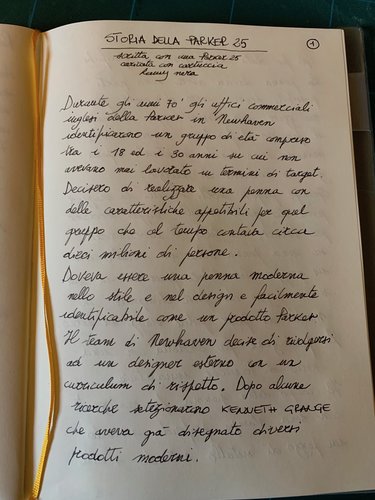 STORIA DELLA PARKER 25
1
scritta con una Parker 25
caricata con cartuccia
Lamy nera
Durante gli anni 70' gli uffici commerciali
inglesi della Parker in Newhaven
identificarono un gruppo di età compreso
tra i 18 ed i 30 anni su cui non
avevano mai lavorato in termini di target.
Decisero di realizzare una penna con
delle caratteristiche appetibili per quel
gruppo che al tempo contava circa
dieci milioni di persone.
Doveva essere una penna moderna
nello stile e nel design e facilmente
identificabile come un prodotto Parker
Il team di Newhaven decise di rivolgersi
ad un designer esterno con un
curriculum di rispetto. Dopo alcune
ricerche selezionarono KENNETH GRANGE
che aveva già disegnato diversi
prodotti moderni.